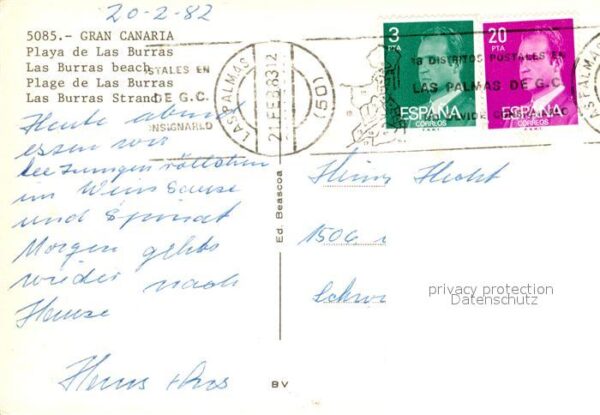 20-2-82
5085.- GRAN CANARIA
Playa de Las Burras
Las Burras beach
Plage de Las Burras
Las Burras Strand
STALES EN
DE G.C.
NSIGNARLO
LAS PALMAS
21 FEB 83 12
(50)
18 DISTRITOS POSTALES EN
LAS PALMAS DE G.C.
3
PTA
ESPAÑA
CORREOS
20
PTA
ESPAÑA
CORREOS
Heute abend
essen wir
Seezungen röllchen
im Wein Sauce
und Spinat
Morgen gehts
wieder nach
Hause
Hans +
Ed. Beascoa
BV
Heinz Hecht
1506
Schw
privacy protection
Datenschutz